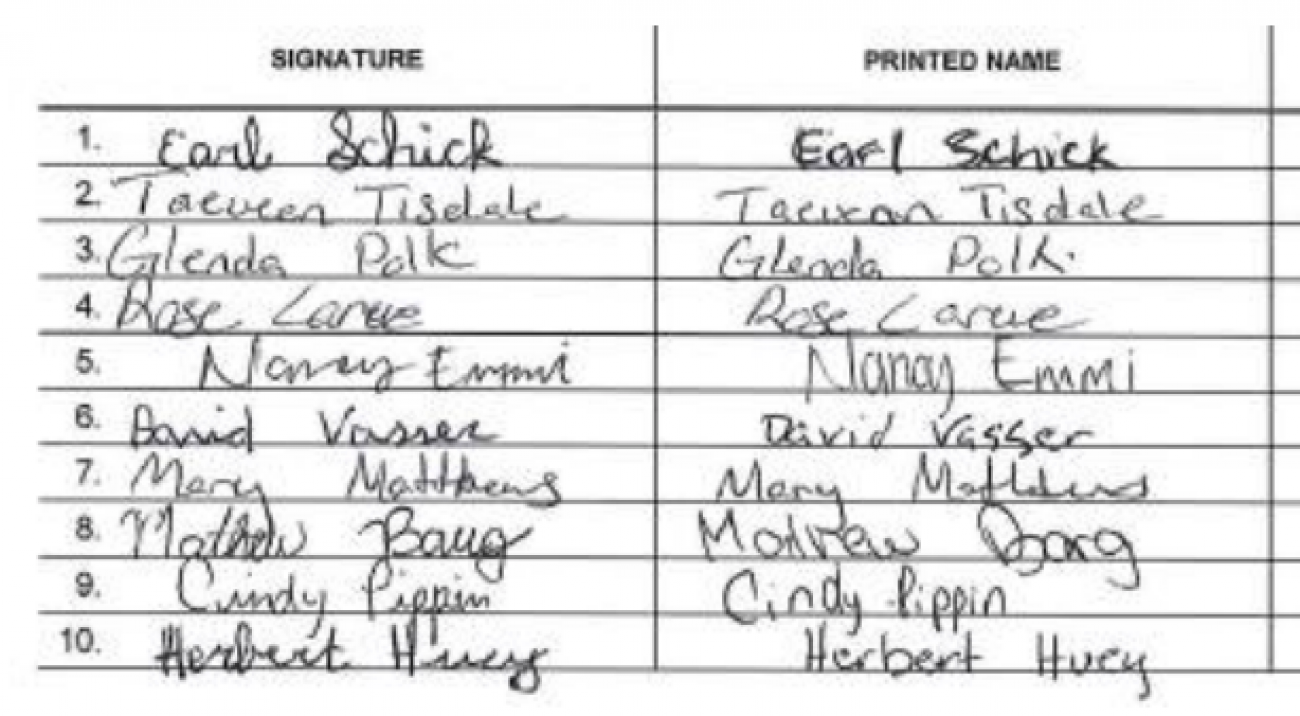 SIGNATURE PRINTED NAME
1. Earl Schick Earl Schick
2. Taevean Tisdale Taevean Tisdale
3. Glenda Polk Glenda Polk
4. Rose Larue Rose Larue
5. Nancy Emmi Nancy Emmi
6. David Vasser David Vasser
7. Mary Matthews Mary Matthews
8. Mathew Baug
9. Cindy Pippin Cindy Pippin
10. Herbert Huey Herbert Huey